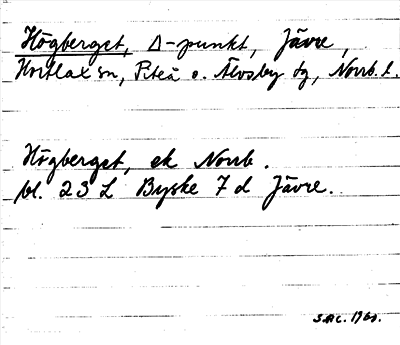 Högberget, Δ-punkt, Jävre,
Hortlax sn, Piteå o. Älvsby tg, Norrb. l.
Högberget, ek Norrb.
bl. 23 L Byske 7 d Jävre.
1960.